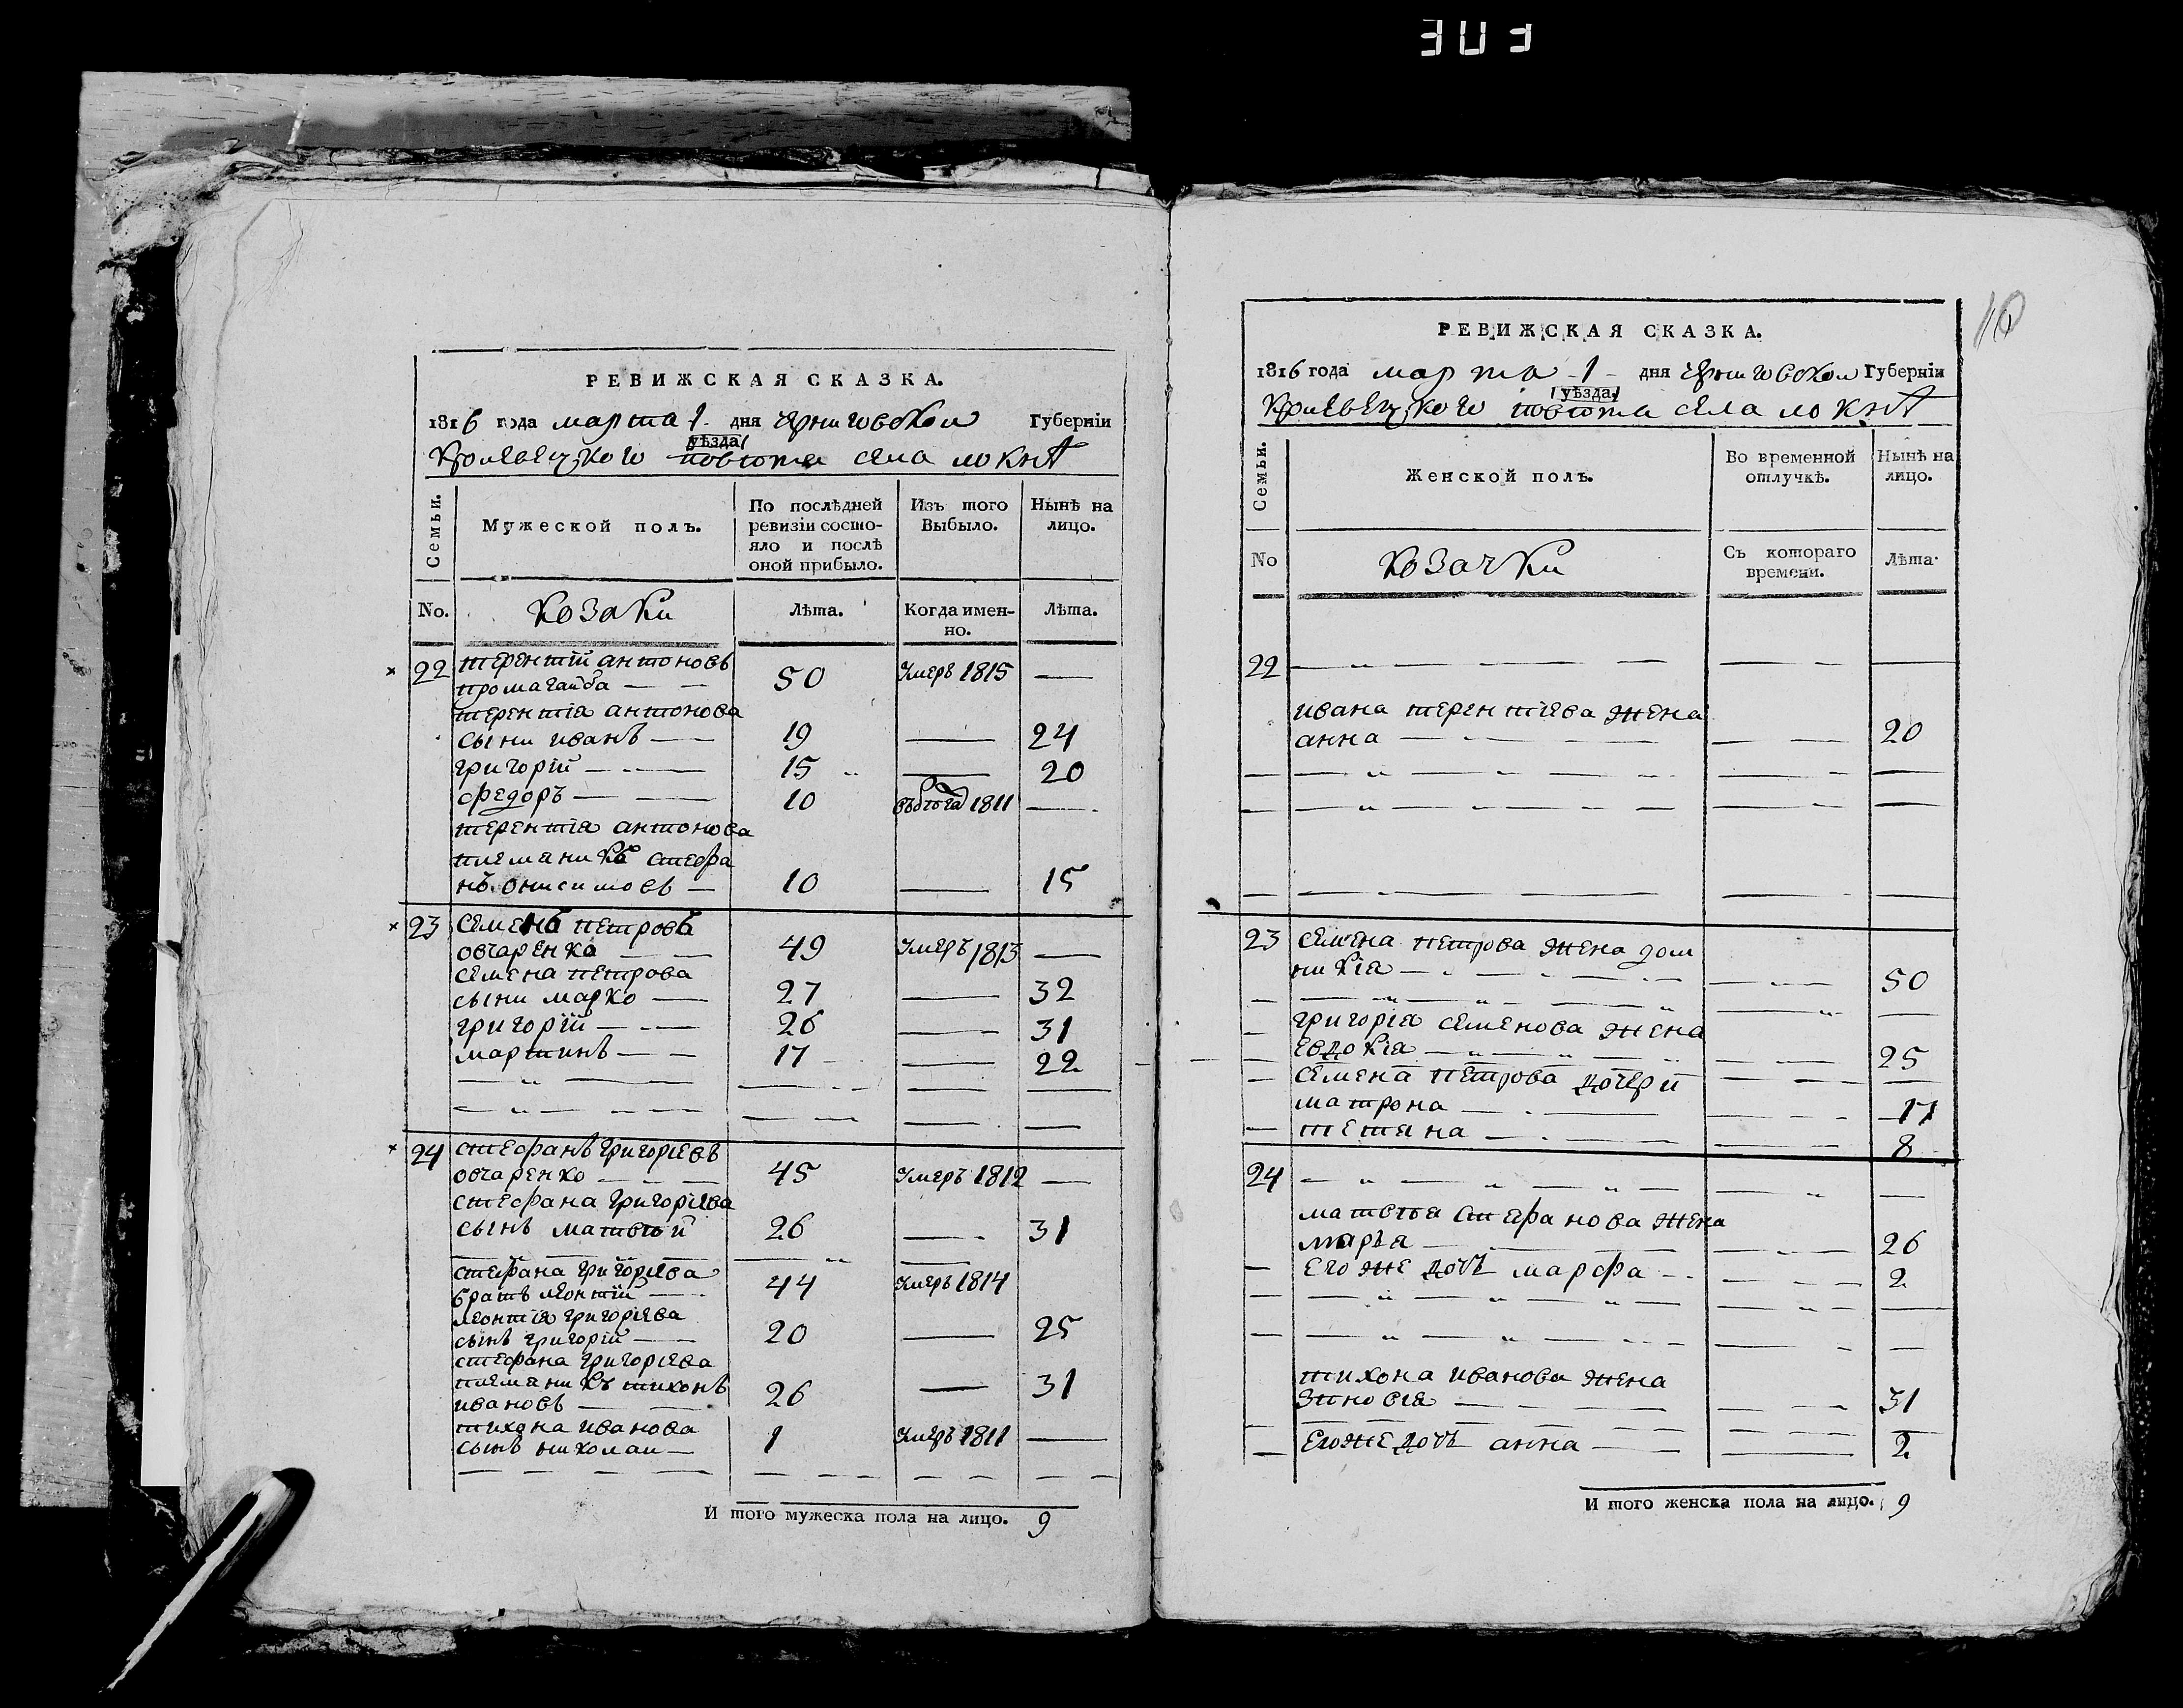 РЕВИЖСКАЯ СКАЗКА.
1816 года марта 1. дня черниговской Губерніи
уѣзда
Кролевецкого повѣта села локнѣ
Семьи.
Мужеской полъ.
По послѣдней ревизіи состо-
яло и послѣ
оной прибыло.
Изъ того
Выбыло.
Нынѣ на
лицо.
No.
Козаки
Лѣта.
Когда имен-
но.
Лѣта.
22 терентій антоновъ
50 Умеръ 1815 —
терентіа антонова
сыни иванъ — 19 — 24
григорій — 15 — 20
федоръ — 10 1811 —
терентіа антонова
племаникъ стефа
нъ онисимовъ — 10 — 15
23 Семенъ петровъ
овчаренко 49 Умеръ 1813 —
семена петрова
сыни марко — 27 — 32
григорій — 26 — 31
мартинъ — 17 — 22
24 стефанъ григоріевъ
овчаренко — 45 Умеръ 1812 —
стефана григоріева
сынъ матвѣй 26 — 31
стефана григоріева
братъ леонтій — 44 Умеръ 1814
леонтіа григоріева
сынъ григорій — 20 — 25
стефана григоріева
племаникъ тихонъ
ивановъ — 26 — 31
тихона иванова
сынъ николаи — 1 Умеръ 1811 —
И того мужеска пола на лицо. 9
РЕВИЖСКАЯ СКАЗКА.
1816 года марта - 1 - дня черниговской Губерніи
уѣзда
Кролевецкого повѣта села локнѣ
Семьи.
Женской полъ.
Во временной
отлучкѣ.
Нынѣ на
лицо.
No
Козачки
Съ котораго
времени.
Лѣта.
22
ивана терентіева жена
анна — 20
23 семена петрова жена дом
никіа — 50
григоріа семенова жена
евдокіа — 25
семена петрова дочери
матрона — 17
тетяна — 8
24
матвѣя стефанова жена
марья — 26
его же дочь марфа — 2
тихона иванова жена
зиновіа — 31
егоже дочь анна — 2
И того женска пола на лицо. 9